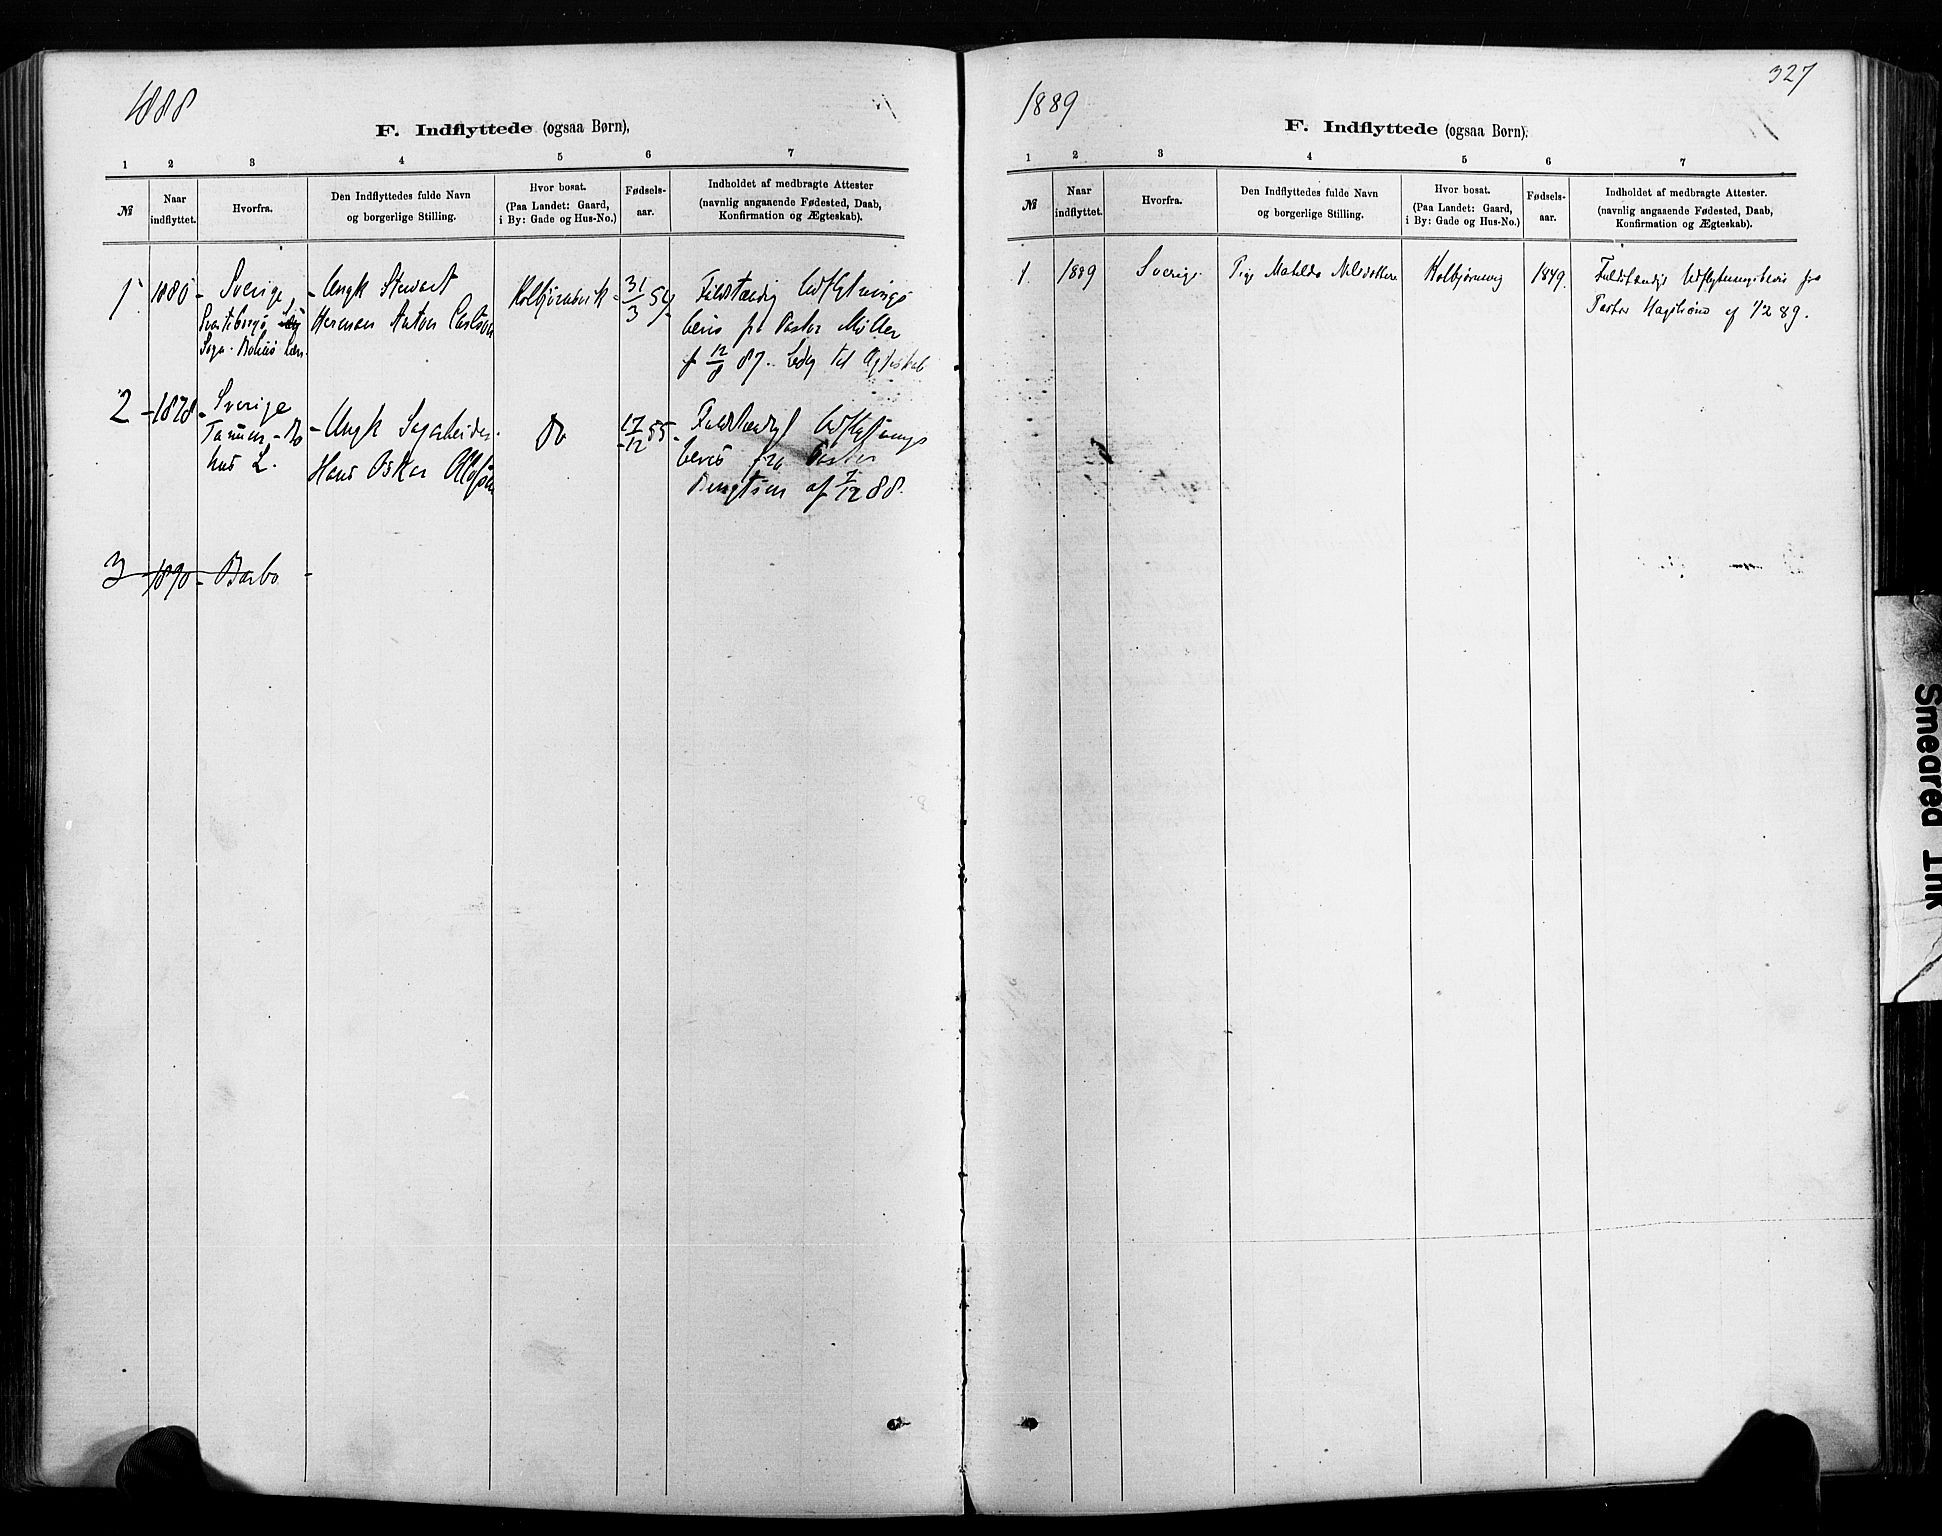 1888
F. Indflyttede (ogsaa Børn),
1 2 3 4 5 6 7
№
Naar
indflyttet.
Hvorfra.
Den Indflyttedes fulde Navn
og borgerlige Stilling.
Hvor bosat.
(Paa Landet: Gaard,
i By: Gade og Hus-No.)
Fødsels-
aar.
Indholdet af medbragte Attester
(navnlig angaaende Fødested, Daab,
Konfirmation og Ægteskab).
1. 1880 - Sverige
Svarteborgs
Sogn. Bohus Læn.
- Ungk Stuvart
Herman Anton Carlson
Kolbjørnsvik -
31/3 54 -
Fuldstændig Udflytnings
bevis fra Pastor Möller
af 12/8 87. Ledig til Ægteskab
2 - 1878 - Sverige
Tanum - Bo
hus L.
- Ungk Sagarbeider
Hans Oskar Olofsen
do
17/12 55 -
Fuldstændigt Udflytnings
bevis fra Pastor
Bengtson af 7/12 88.
3 - 1890 - Barbo -
327
1889
F. Indflyttede (ogsaa Børn),
1 2 3 4 5 6 7
№
Naar
indflyttet.
Hvorfra.
Den Indflyttedes fulde Navn
og borgerlige Stilling.
Hvor bosat.
(Paa Landet: Gaard,
i By: Gade og Hus-No.)
Fødsels-
aar.
Indholdet af medbragte Attester.
(navnlig angaaende Fødested, Daab,
Konfirmation og Ægteskab).
1. 1889 Sverige. Pige Matilda Nilsdotter Kolbjørnsvig 1849. Fuldstændigt Udflytningsbevis fra
Pastor af 1/2 89.
Smeared Ink